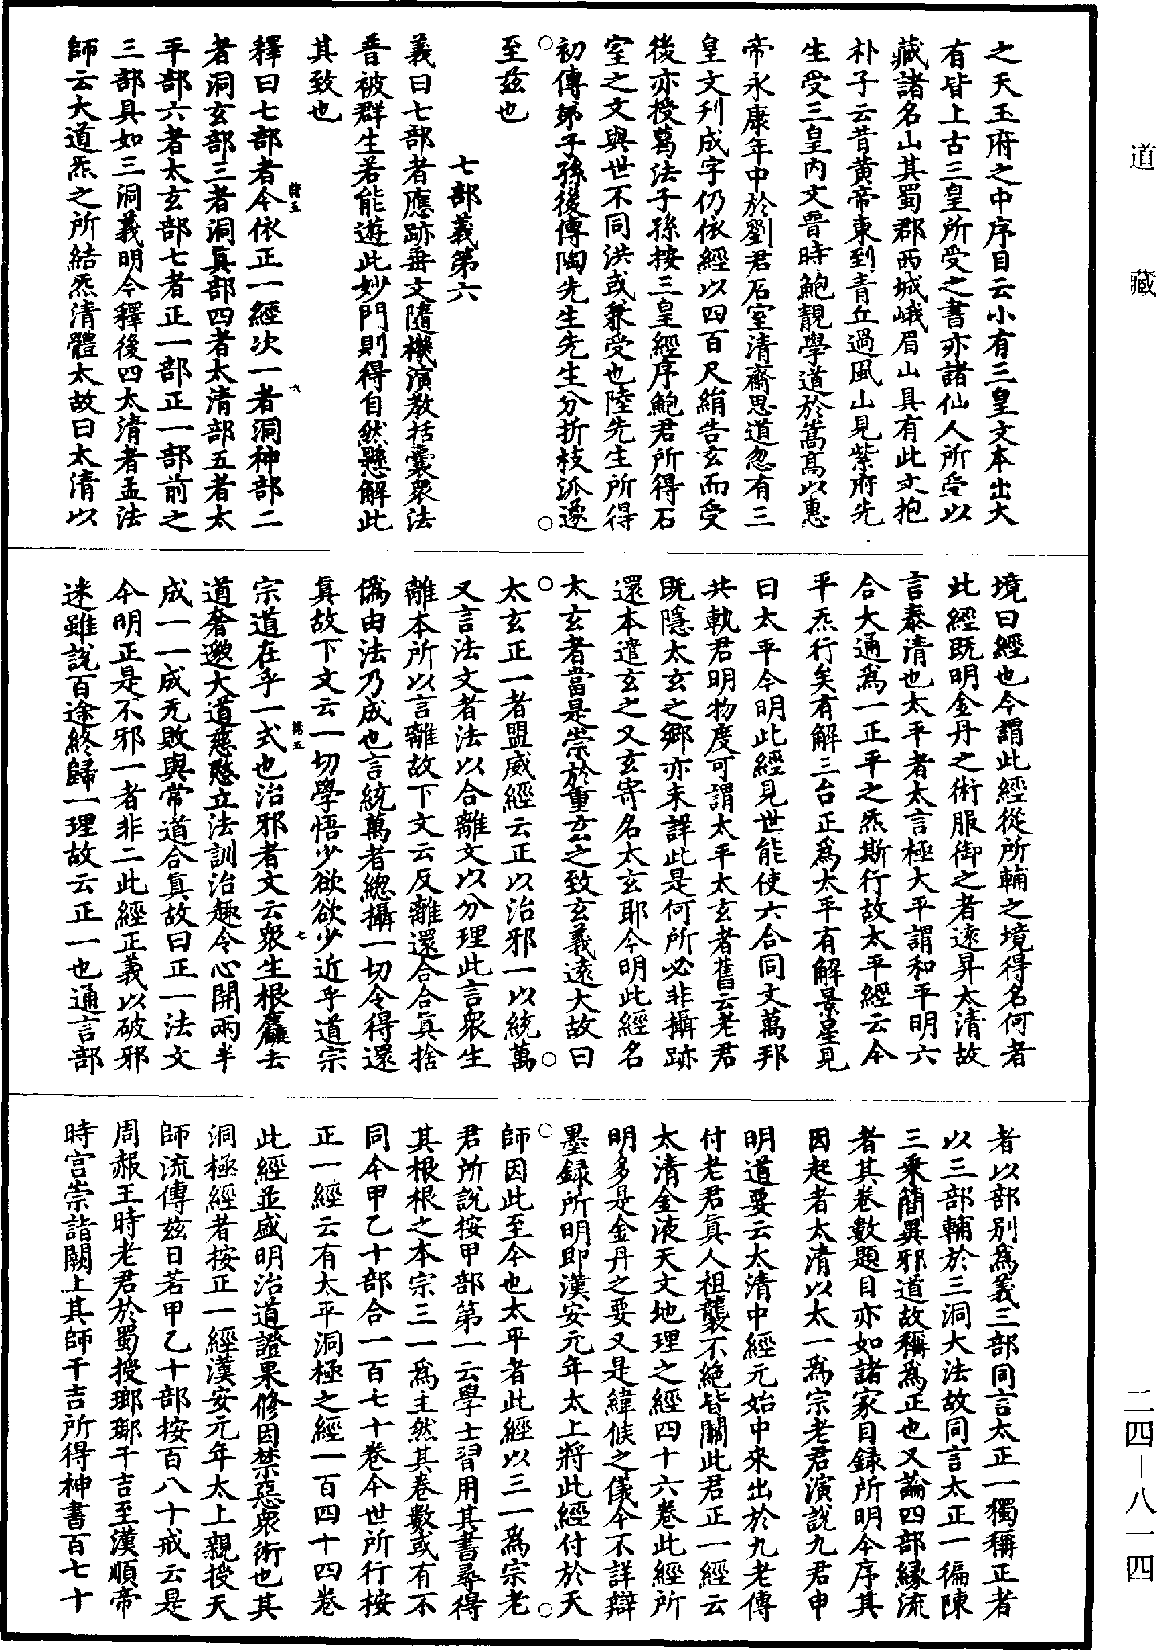 道藏
二四—八一四
之天玉府之中序目云小有三皇文本出大
有皆上古三皇所受之書亦諸仙人所受以
藏諸名山其蜀郡西城峨眉山具有此文抱
朴子云昔黃帝東到青丘過風山見紫府先
生受三皇內文晉時鮑靚學道於嵩高以惠
帝永康年中於劉君石室清齋思道忽有三
皇文刋成字仍依經以四百尺絹告玄而受
後亦授葛法子孫按三皇經序鮑君所得石
室之文與世不同洪或兼受也陸先生所得
初傳弟子孫後傳陶先生先生分折枝派遂
至茲也
七部義第六
義曰七部者應跡垂文隨機演教括囊衆法
普被群生若能遊此妙門則得自然懸解此
其致也
釋曰七部者今依正一經次一者洞神部二
者洞玄部三者洞真部四者太清部五者太
平部六者太玄部七者正一部正一部前之
三部具如三洞義明今釋後四太清者孟法
師云大道炁之所結炁清體太故曰太清以
境曰經也今謂此經從所輔之境得名何者
此經既明金丹之術服御之者遠昇太清故
言泰清也太平者太言極大平謂和平明六
合大通爲一正平之炁斯行故太平經云今
平炁行矣有解三台正爲太平有解景星見
曰太平今明此經見世能使六合同文萬邦
共軌君明物度可謂太平太玄者舊云老君
既隱太玄之鄉亦未詳此是何所必非攝跡
還本遣玄之又玄寄名太玄耶今明此經名
太玄者當是崇於重玄之致玄義遠大故曰
太玄正一者盟威經云正以治邪一以統萬
又言法文者法以合離文以分理此言衆生
離本所以言離故下文云反離還合合真捨
僞由法乃成也言統萬者總攝一切令得還
真故下文云一切學悟少欲欲少近乎道宗
宗道在乎一式也治邪者文云衆生根麤去
道奢邈大道慈愍立法訓治趣令心開兩半
成一一成无敗與常道合真故曰正一法文
今明正是不邪一者非二此經正義以破邪
迷雖說百途終歸一理故云正一也通言部
者以部別爲義三部同言太正一獨稱正者
以三部輔於三洞大法故同言太正一徧陳
三乘簡異邪道故稱爲正也又論四部緣流
者其卷數題目亦如諸家目録所明今序其
因起者太清以太一爲宗老君演說九君申
明道要云太清中經元始中來出於九老傳
付老君真人祖襲不絶皆關此君正一經云
太清金液天文地理之經四十六卷此經所
明多是金丹之要又是緯候之儀今不詳辯
墨録所明即漢安元年太上將此經付於天
師因此至今也太平者此經以三一爲宗老
君所說按甲部第一云學士習用其書尋得
其根根之本宗三一爲主然其卷數或有不
同今甲乙十部合一百七十卷今世所行按
正一經云有太平洞極之經一百四十四卷
此經並盛明治道證果修因禁惡衆術也其
洞極經者按正一經漢安元年太上親授天
師流傳茲日若甲乙十部按百八十戒云是
周赧王時老君於蜀授瑯琊干吉至漢順帝
時宮崇詣闕上其師干吉所得神書百七十